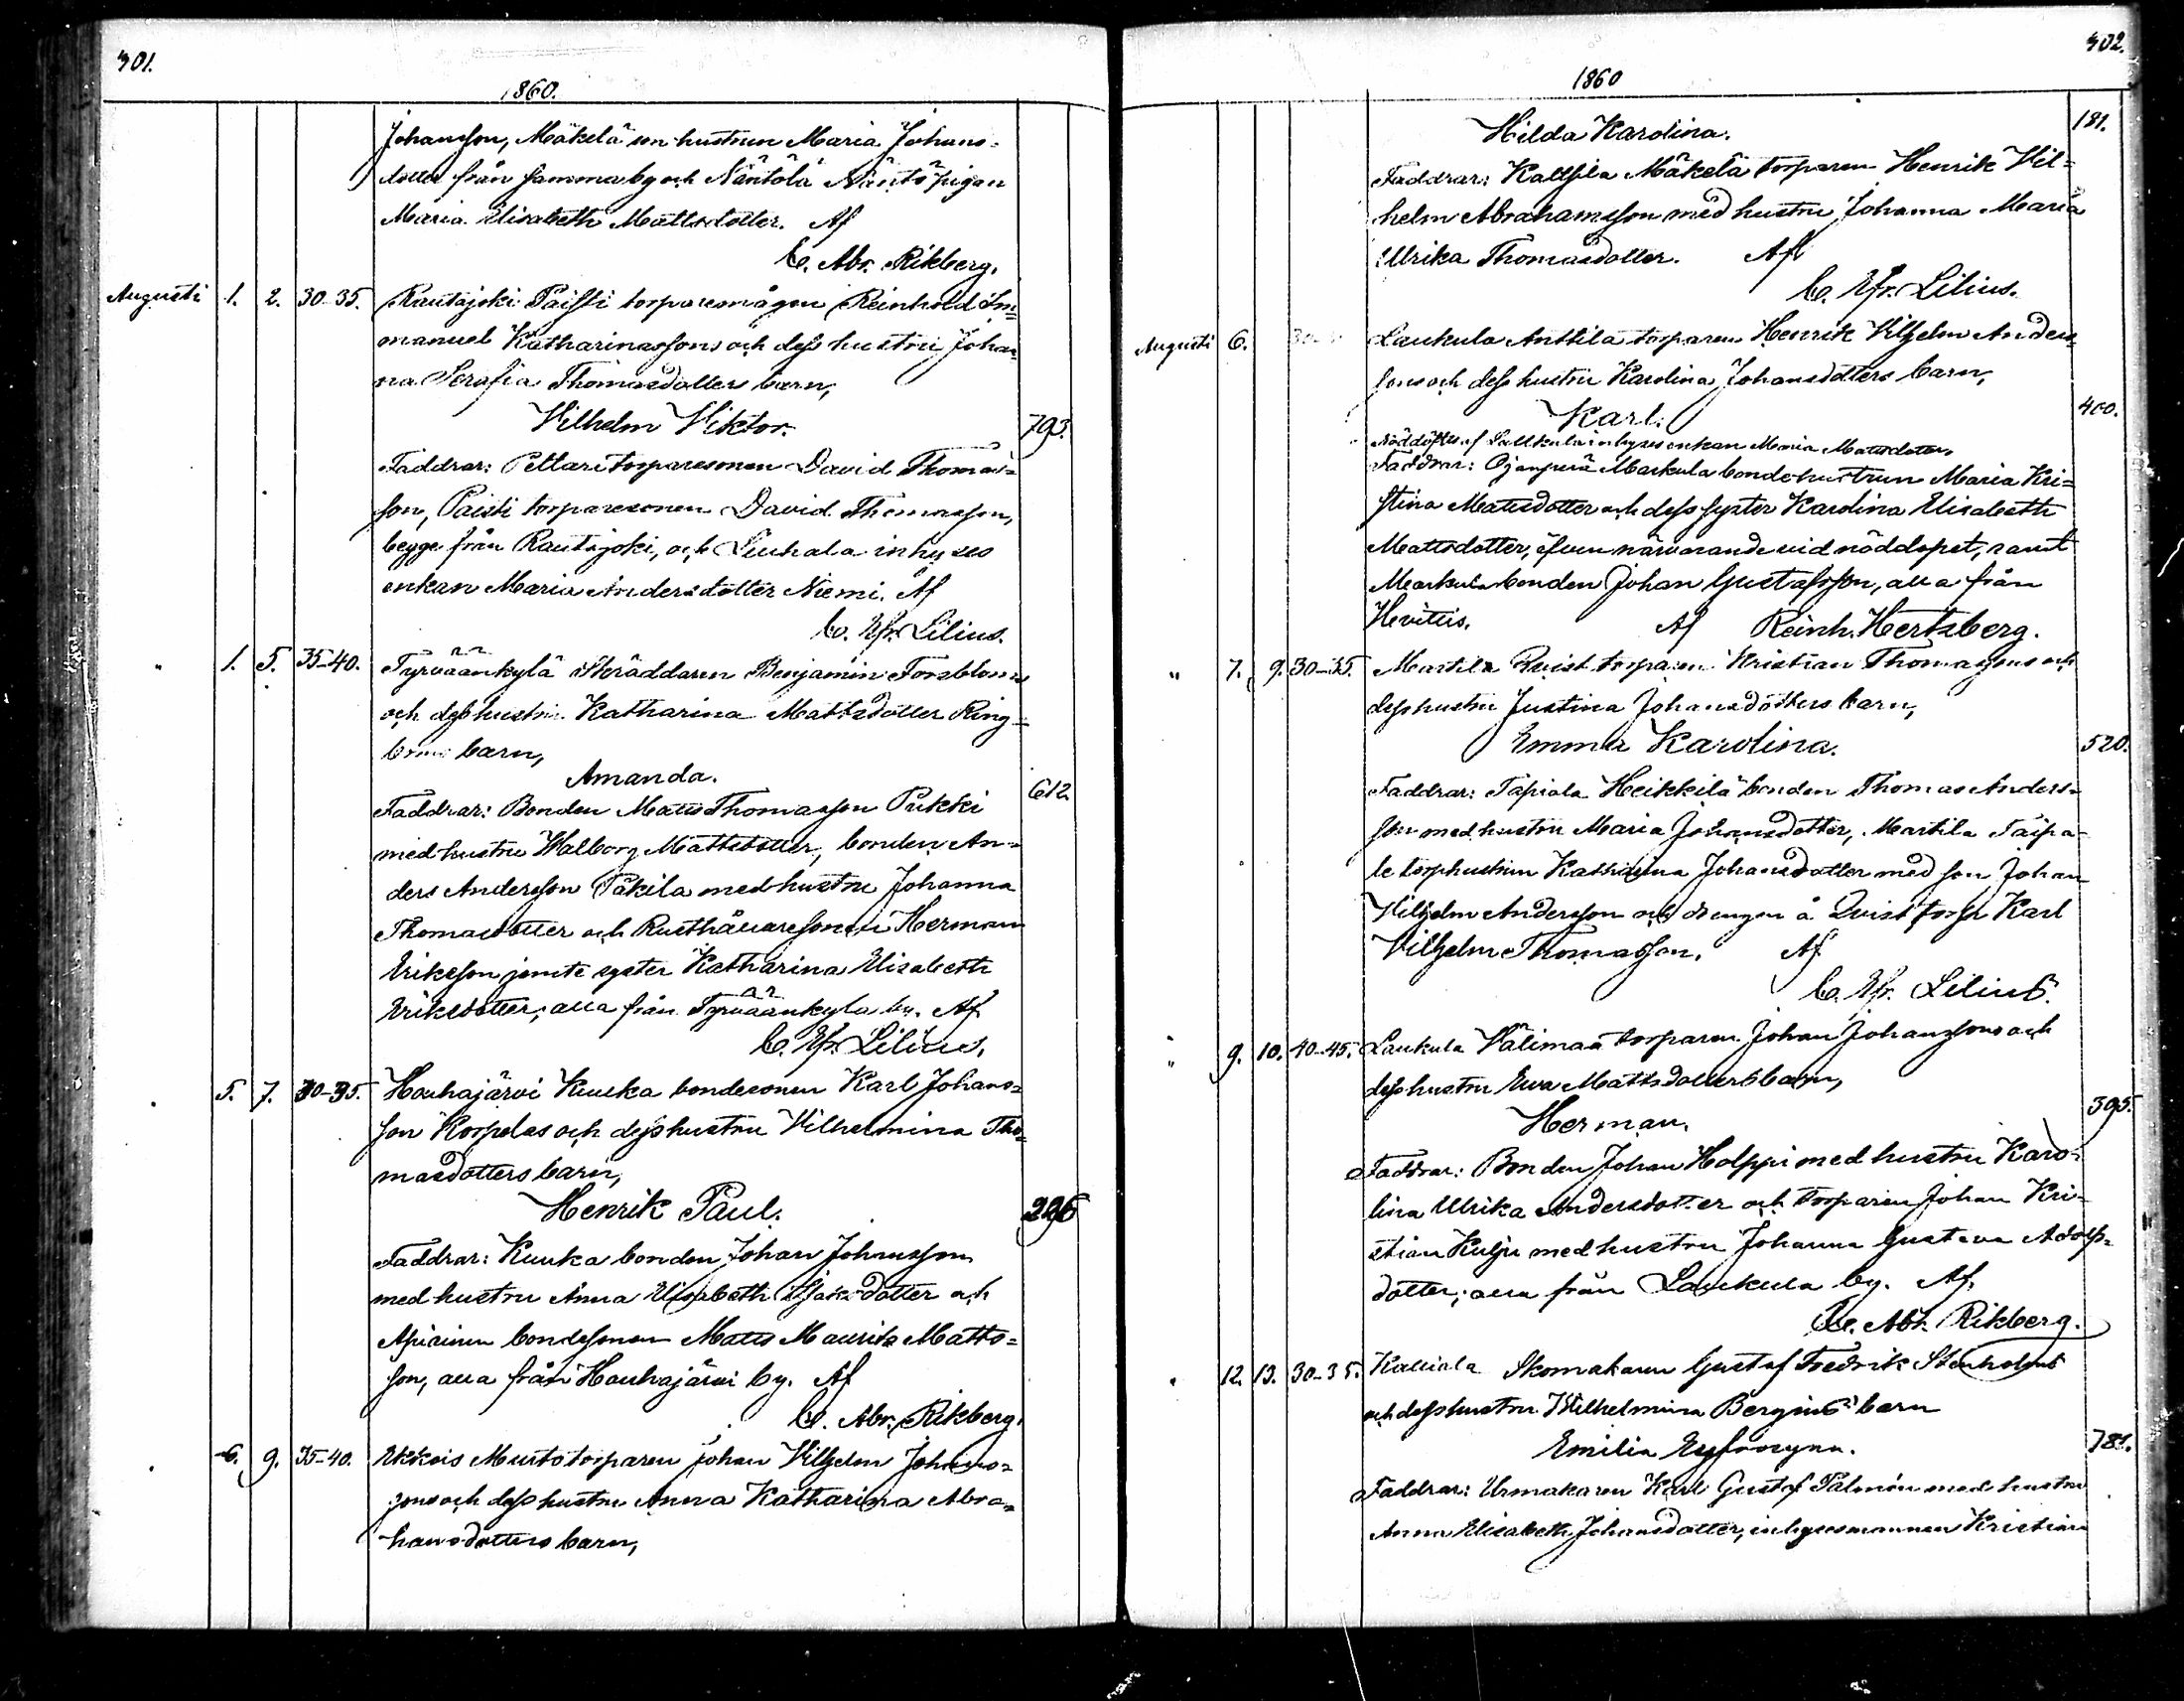 301.
1860.
Johansson, Mäkelä son hustrun Maria Johans-
dotter från samma by och Näntölä Näntö pigan
Maria Elisabeth Mattsdotter. Af
C. Abr. Rikberg.
Augusti 1. 2. 30-35. Rautajoki Paisti torparemågen Reinhold Im=
manuel Katharinassons och dess hustru Johan
na Serafia Thomasdotters barn,
Vilhelm Viktor. 793.
Faddrar: Pettari torparesonen David Thomas=
son, Paisti torparesonen David Thomasson,
begge från Rautajoki, och Liuhala inhyses
enkan Maria Andersdotter Niemi. Af
C. Efr. Lilius.
" 1. 5. 35-40. Tyrväänkylä Skräddaren Benjamin Forsbloms
och dess hustru Katharina Mattsdotter Ring-
boms barn,
Amanda. 612
Faddrar: Bonden Matts Thomasson Pukki
med hustru Walborg Mattsdotter, bonden An=
ders Andersson Päkilä med hustru Johanna
Thomasdotter och Rusthållaresonen Herman
Eriksson jemte syster Katharina Elisabeth
Eriksdotter, alla från Tyrväänkylä by. Af
C. Efr. Lilius.
" 5. 7. 30-35. Houhajärvi Kuuka bondesonen Karl Johans=
son Korpelas och dess hustru Vilhelmina Tho=
masdotters barn,
Henrik Paul. 296
Faddrar: Kuuka bonden Johan Johansson
med hustru Anna Elisabeth Isaksdotter och
bondesonen Matts Maurits Matts=
son, alla från Houhajärvi by. Af
C. Abr. Rikberg.
" 6. 9. 35-40. Ekkois Musto torparen Johan Vilhelm Johans=
sons och dess hustru Anna Katharina Abra=
hamsdotters barn,
302.
1860
Hilda Karolina. 181.
Faddrar: Kallsila Mäkelä torparen Henrik Vil=
helm Abrahamsson med hustru Johanna Maria
Ulrika Thomasdotter. Af
C. Efr. Lilius.
Augusti 6. Laukula Anttila torparen Henrik Vilhelm Anders=
sons och dess hustru Karolina Johansdotters barn,
Karl. 400.
Nöddöptes af Laukula inhyses enkan Maria Mattsdotter.
Faddrar: Ojanperä Markula bondehustrun Maria Kri=
stina Mattsdotter och dess syster Karolina Elisabeth
Mattsdotter, äfven närvarande vid nöddopet, samt
Markula bonden Johan Gustafsson, alla från
Hvittis. Af Reinh. Hertzberg.
" 7. 9. 30-35. Martila Quist torparen Kristian Thomassons och
dess hustru Justina Johansdotters barn,
Emma Karolina. 520.
Faddrar: Tapiola Heikkilä bonden Thomas Anders=
son med hustru Maria Johansdotter, Martila Taipa-
le torphustrun Katharina Johansdotter med son Johan
Vilhelm Andersson och drengen å Quist torp Karl
Vilhelm Thomasson. Af
C. Efr. Lilius.
" 9. 10. 40-45. Laukula Välimaa torparen Johan Johanssons och
dess hustru Eva Mattsdotters barn,
Herman. 395.
Faddrar: Bonden Johan Holppi med hustru Karo-
lina Ulrika Andersdotter och torparen Johan Kri-
stian Kulju med hustru Johanna Gustava Adolfs-
dotter, alla från Laukula by. Af
C. Abr. Rikberg.
" 12. 13. 30-35. Kalliala Skomakaren Gustaf Fredrik Stenholms
och dess hustru Wilhelmina Bergius' barn
Emilia Eufrosyna. 781.
Faddrar: Urmakaren Karl Gustaf Palmén med hustru
Anna Elisabeth Johansdotter, inhysesmannen Kristian